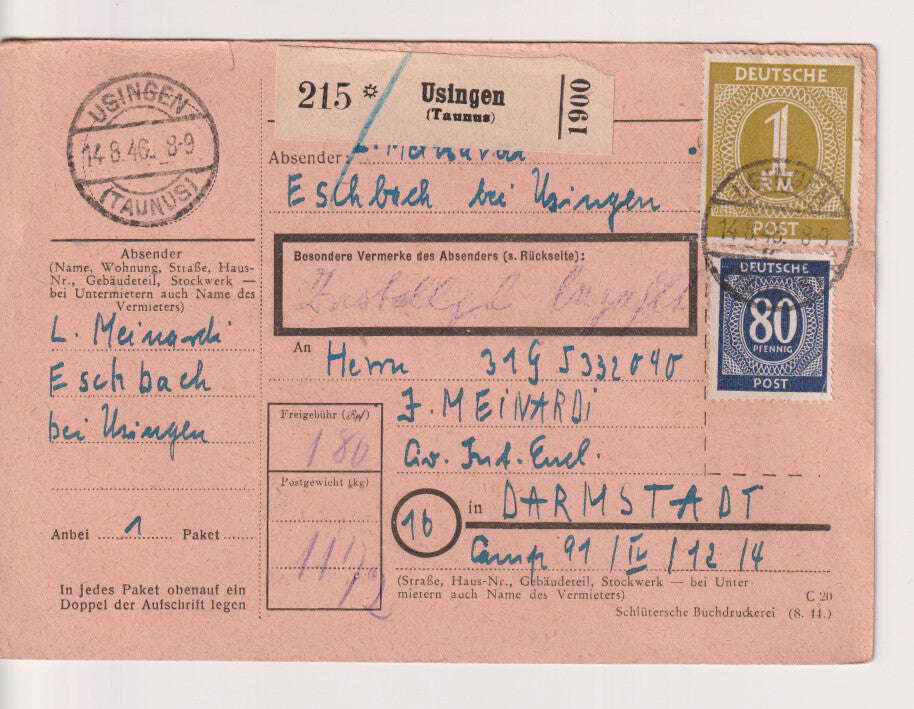 USINGEN
14.8.46. 8-9
(TAUNUS)
215 * Usingen
(Taunus)
1900
DEUTSCHE
1
RM.
POST
Absender:
Eschbach bei Usingen
Absender
(Name, Wohnung, Straße, Haus-
Nr., Gebäudeteil, Stockwerk —
bei Untermietern auch Name des
Vermieters)
L. Meinardi
Eschbach
bei Usingen
Anbei 1 Paket
In jedes Paket obenauf ein
Doppel der Aufschrift legen
Besondere Vermerke des Absenders (s. Rückseite):
Zustellgeb. bezahlt
DEUTSCHE
80
PFENNIG
POST
An Herrn 31G 5332040
J. MEINARDi
Civ. Int. Encl.
Freigebühr (Rpf)
180
Postgewicht (kg)
16 in DARMSTADT
Camp 91/IV/12/4
(Straße, Haus-Nr., Gebäudeteil, Stockwerk — bei Unter
mietern auch Name des Vermieters)
C 20
Schlütersche Buchdruckerei (8. 44.)